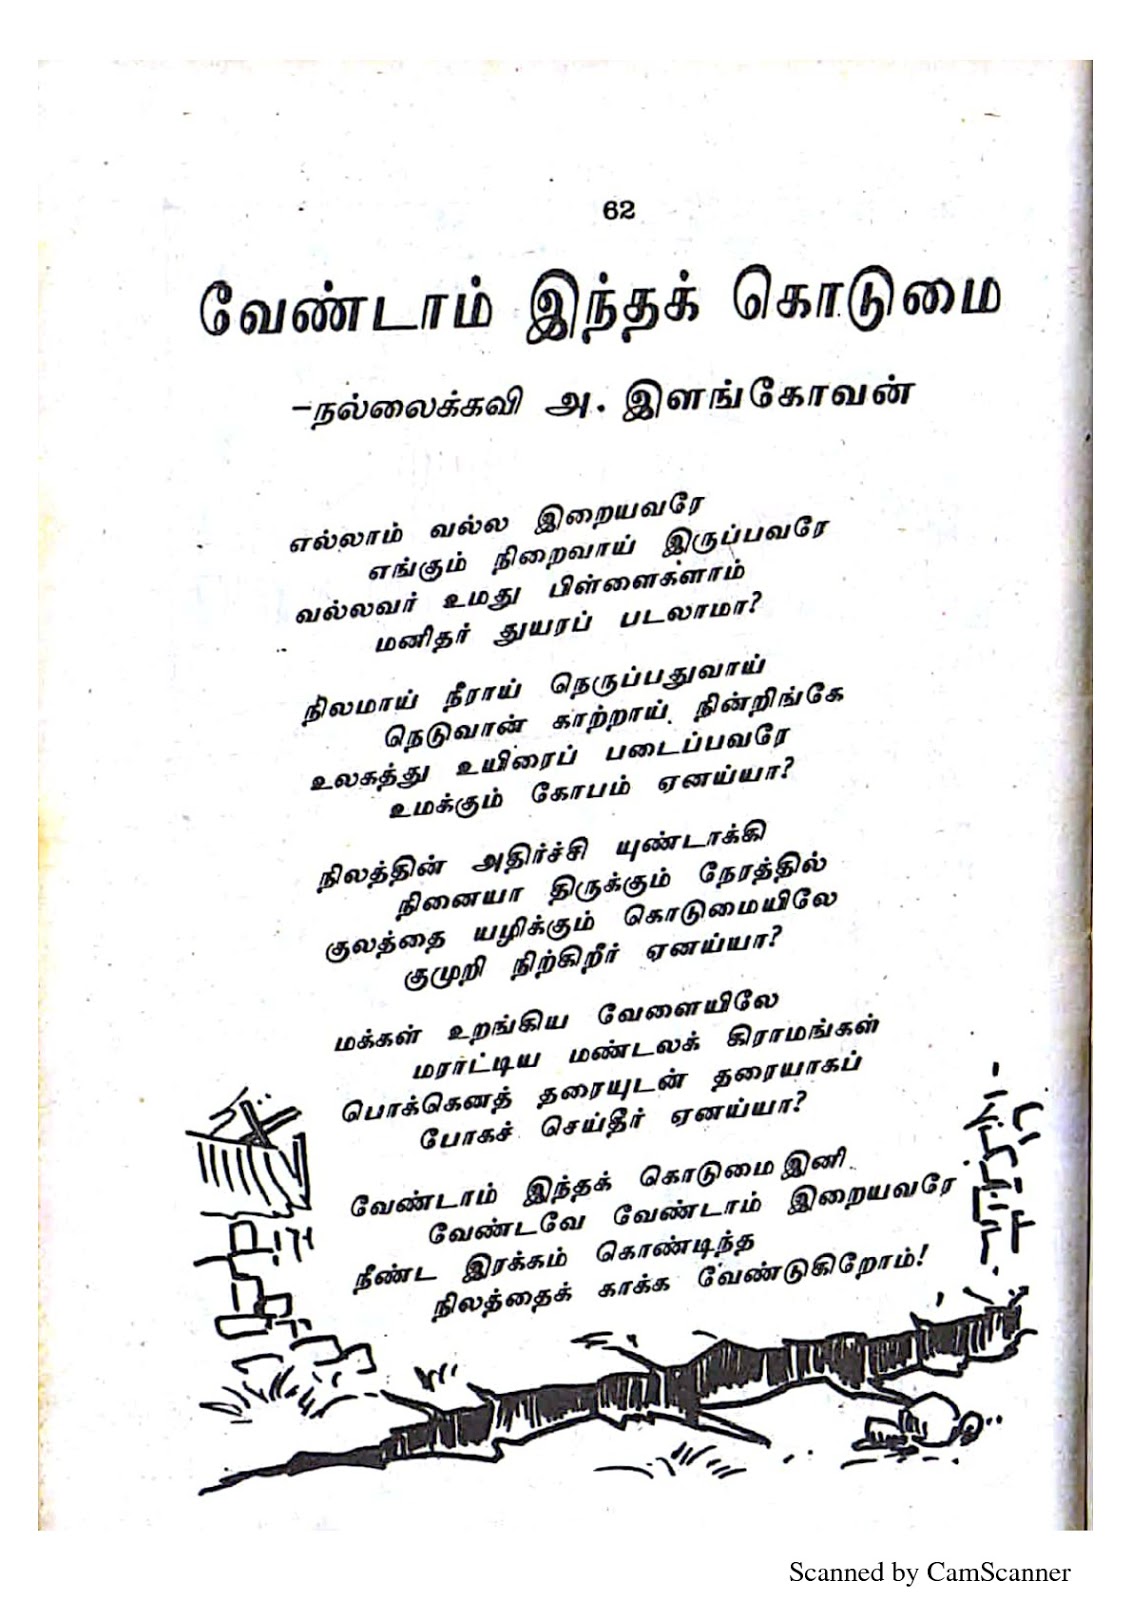 62
வேண்டாம் இந்தக் கொடுமை
–நல்லைக்கவி அ. இளங்கோவன்
எல்லாம் வல்ல இறையவரே
எங்கும் நிறைவாய் இருப்பவரே
வல்லவர் உமது பிள்ளைகளாம்
மனிதர் துயரப் படலாமா?
நிலமாய் நீராய் நெருப்பதுவாய்
நெடுவான் காற்றாய் நின்றிங்கே
உலகத்து உயிரைப் படைப்பவரே
உமக்கும் கோபம் ஏனய்யா?
நிலத்தின் அதிர்ச்சி யுண்டாக்கி
நினையா திருக்கும் நேரத்தில்
குலத்தை யழிக்கும் கொடுமையிலே
குமுறி நிற்கிறீர் ஏனய்யா?
மக்கள் உறங்கிய வேளையிலே
மராட்டிய மண்டலக் கிராமங்கள்
பொக்கெனத் தரையுடன் தரையாகப்
போகச் செய்தீர் ஏனய்யா?
வேண்டாம் இந்தக் கொடுமை இனி
வேண்டவே வேண்டாம் இறையவரே
நீண்ட இரக்கம் கொண்டிந்த
நிலத்தைக் காக்க வேண்டுகிறோம்!
Scanned by CamScanner